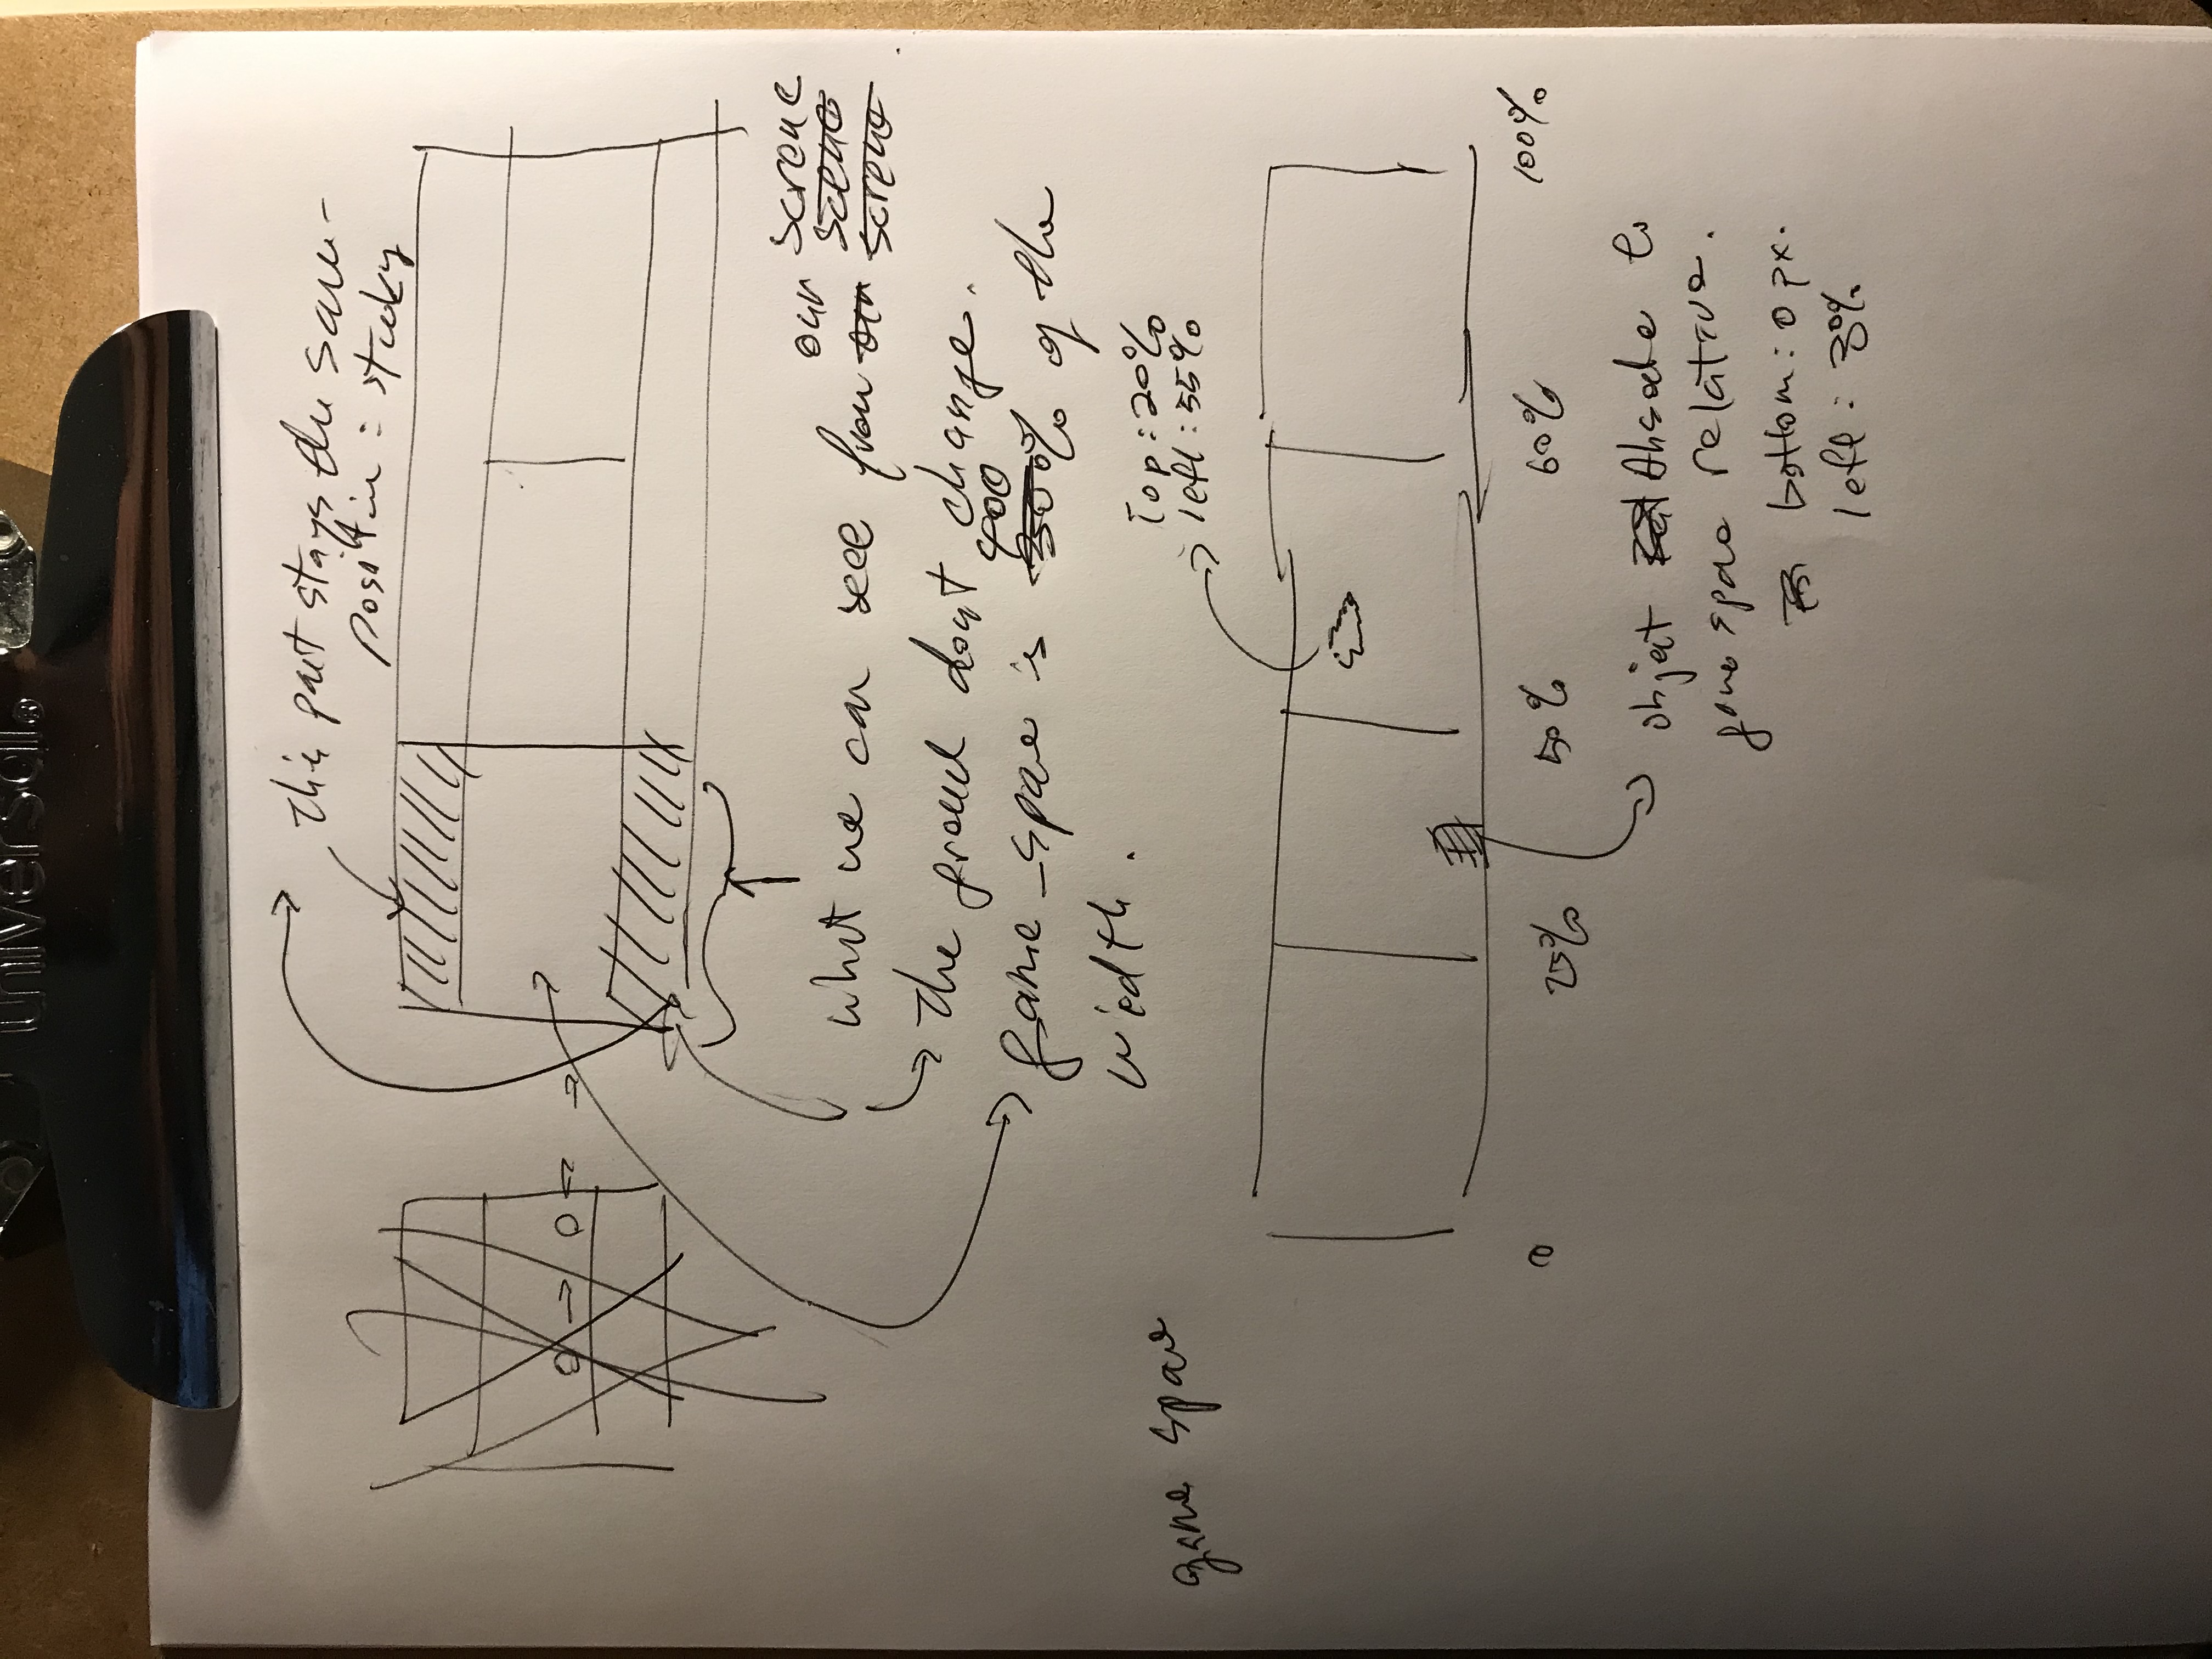 universal®
this part stays the same -
position : sticky
our screne
scene
what we can seee from our screne
The ground dont change.
400
game_space is 300% of the
width.
Top : 20%
left : 55%
game space
0 25% 50% 60% 100%
object Absolute to
game space relative.
bottom : 0 px.
left : 30%